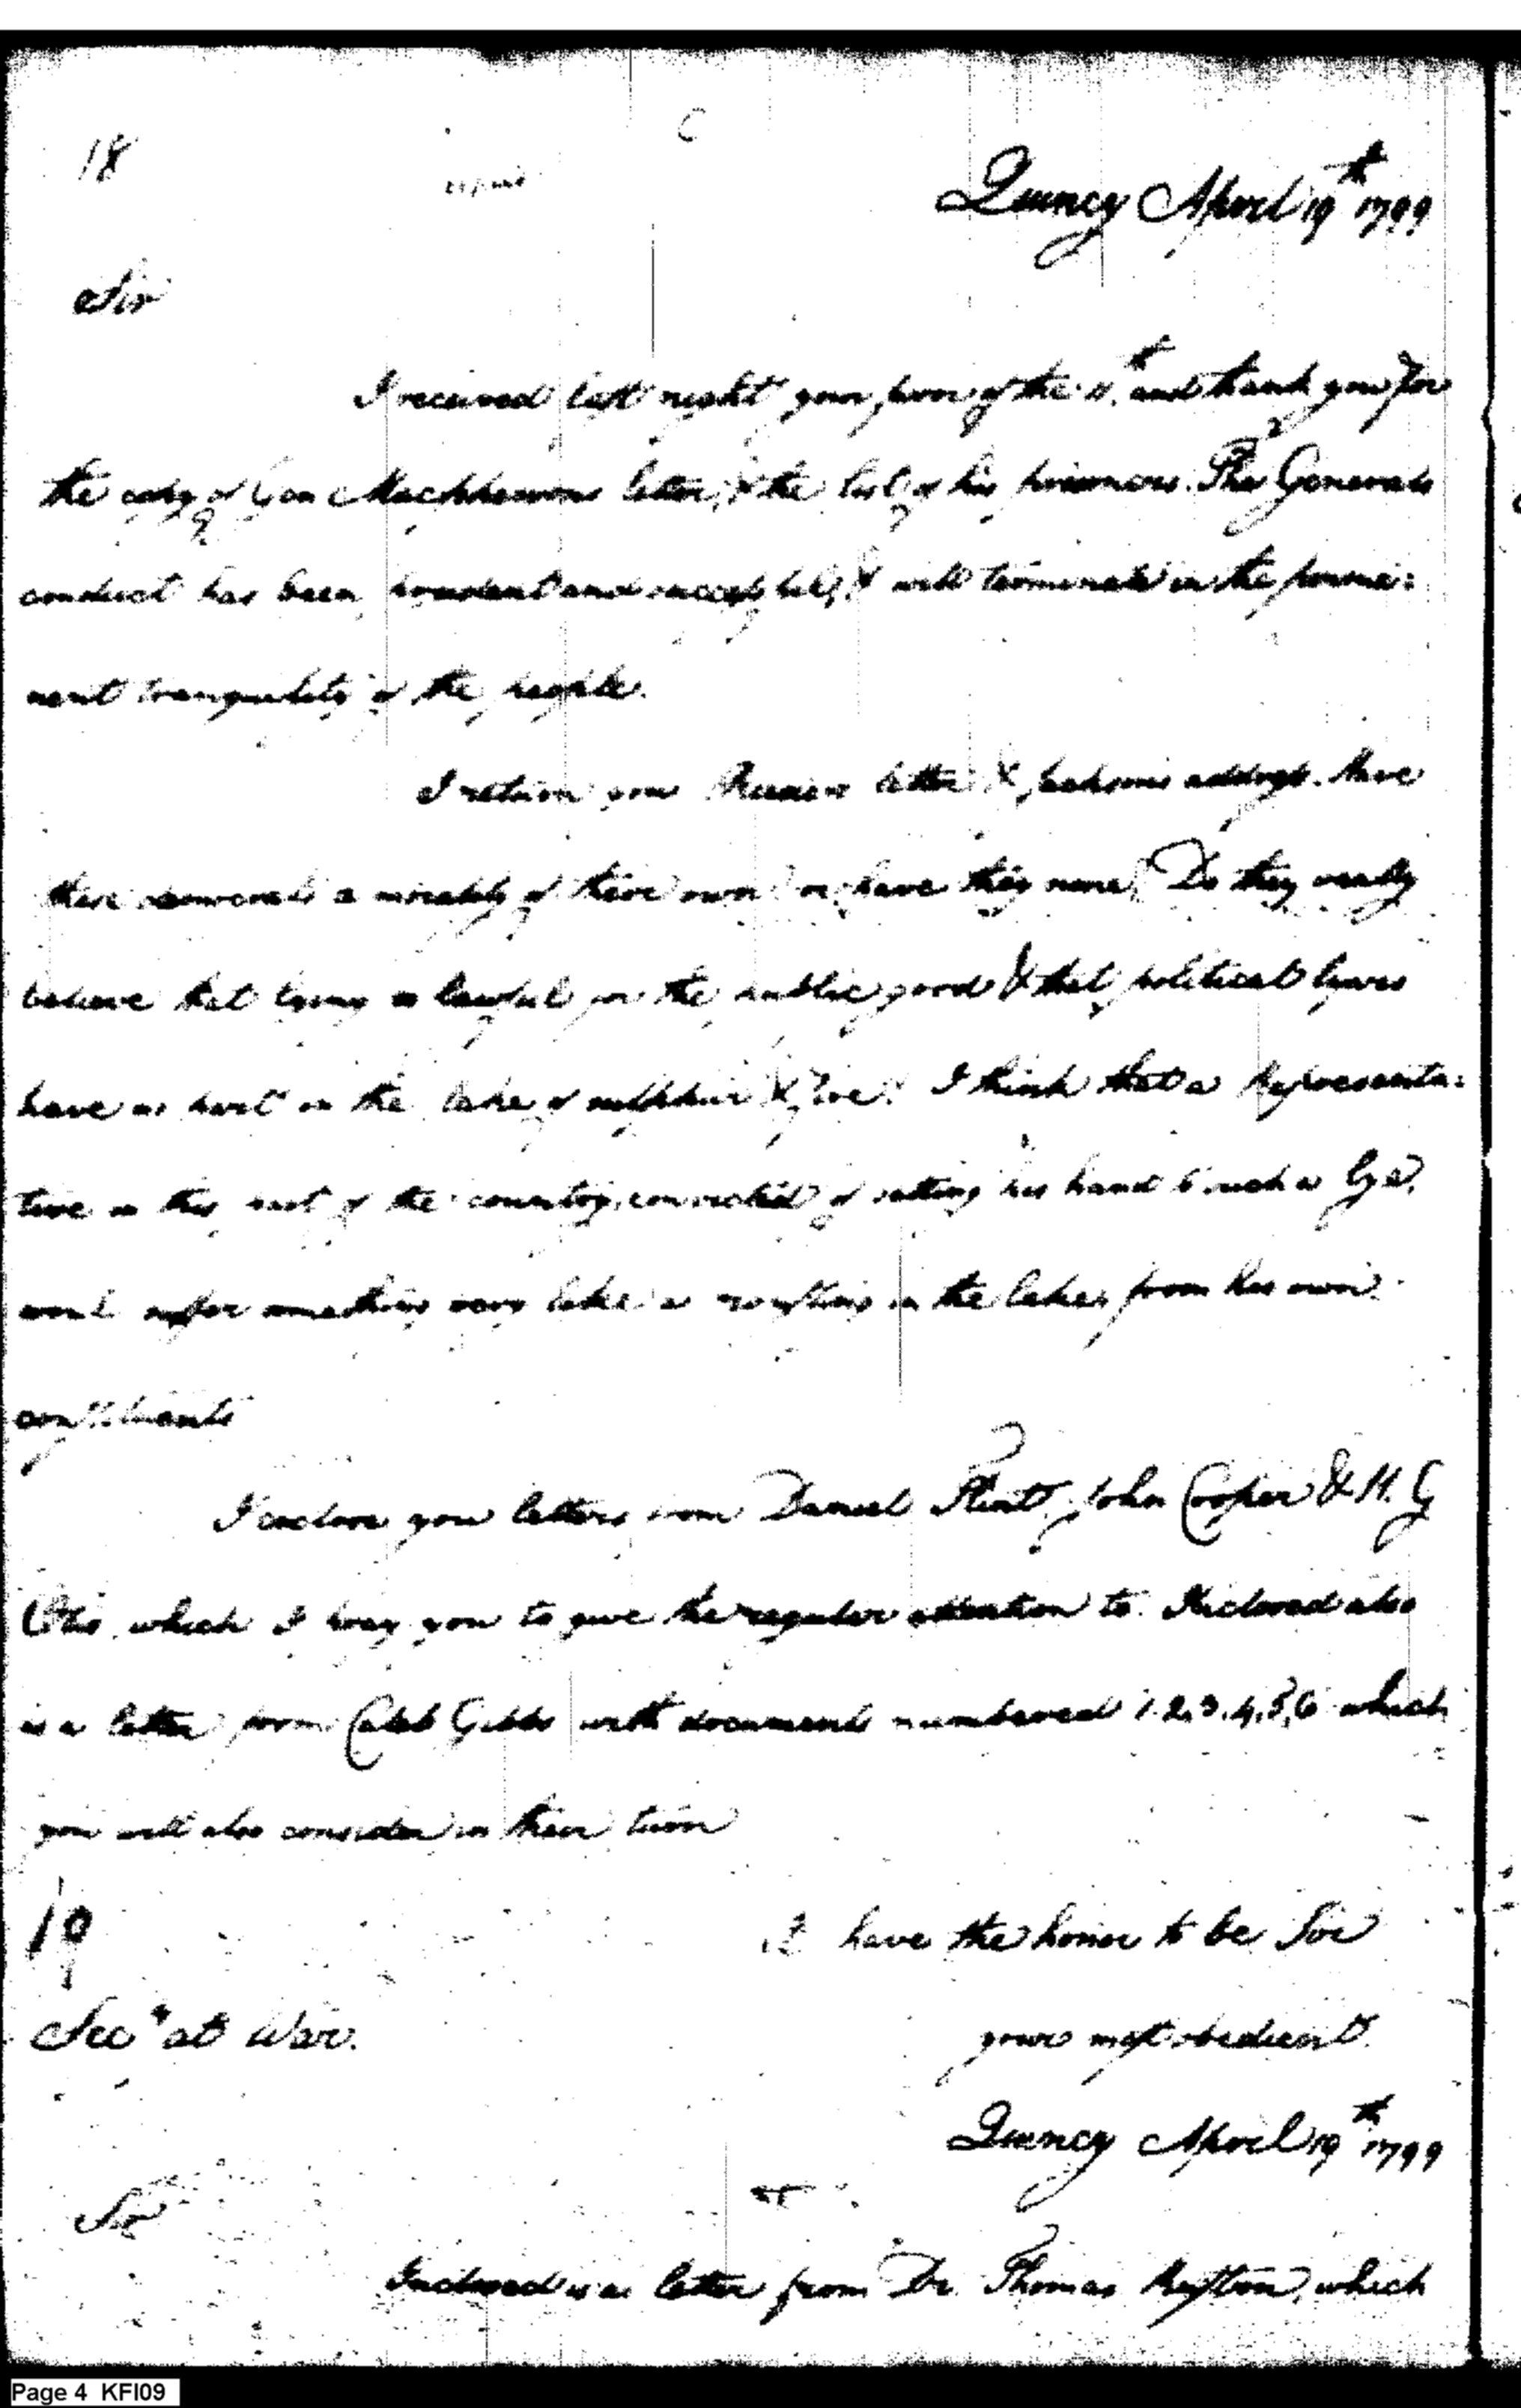 18
C
Quincy April 19th 1799
Sir
I received last night your favor of the 11th and thank you for
the copy of Gen Macphersons letter, & the list of his prisoners. The Generals
conduct has been prudent and successful, & will terminate in the perma=
nent tranquility of the people.
I return you letter & address. Have
these a morality of their own or have they none? Do they really
believe that lying is lawful for the public good & that political lyars
have no part in the lake of sulphur & fire? I think that a Representa=
tive in this part of the country, convicted of setting his hand to such a lye,
would suffer something very like a roasting in the lake, from his own
constituents
I inclose you letters from Daniel Flint, John Cooper & H. G
Otis, which I pray you to give the regular attention to. Inclosed also
is a letter from Caleb Gibbs with documents numbered 1.2.3.4.5.6 which
you will also consider in their turn
19
I have the honor to be Sir
Secy at War.
your most obedient
Quincy April 19th 1799
Sir
Inclosed is a letter from Dr. Thomas which
Page 4 KFI09